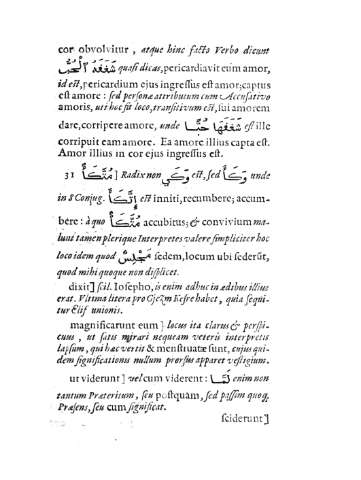 cor obvolvitur, atque hinc facto Verbo dicunt
شَغَفَهُ الْحُبُّ quasi dicas, pericardiavit eum amor,
id est, pericardium ejus ingressus est amor; captus
est amore: sed personæ attributum cum Accusativo
amoris, uti hoc sit loco, transitivum est, sui amorem
dare, corripere amore, unde شَغَفَهَا حُبًّا est ille
corripuit eam amore. Ea amore illius capta est.
Amor illius in cor ejus ingressus est.
31 مُتَّكَأً] Radix non وكى est, sed وَكَأَ unde
in 8 Conjug. إِتَّكَأَ est inniti, recumbere; accum-
bere: à quo مُتَّكَأً accubitus; & convivium ma-
luni tamen plerique Interpretes valere simpliciter hoc
loco idem quod مَجْلِسٌ sedem, locum ubi sederūt,
quod mihi quoque non displicet.
dixit] scil. Iosepho, is enim adhuc in ædibus illius
erat. Vltima litera pro Gjezm Kesre habet, quia sequi-
tur Elif unionis.
magnificarunt eum] locus ita clarus & perspi-
cuus, ut satis mirari nequeam veteris interpretis
lapsum, qui hæc vertit & menstruatæ sunt, cujus qui-
dem significationis nullum prorsus apparet vestigium.
ut viderunt] vel cum viderent: لَمَّا enim non
tantum Præteritum, seu postquam, sed passim quoq;
Præsens, seu cum significat.
sciderunt]